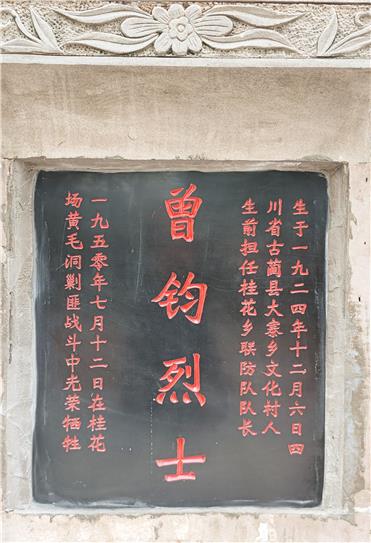 生于一九二四年十二月六日四
川省古蔺县大寨乡文化村人
生前担任桂花乡联防队队长
曾钧烈士
一九五零年七月十二日在桂花
场黄毛洞剿匪战斗中光荣牺牲